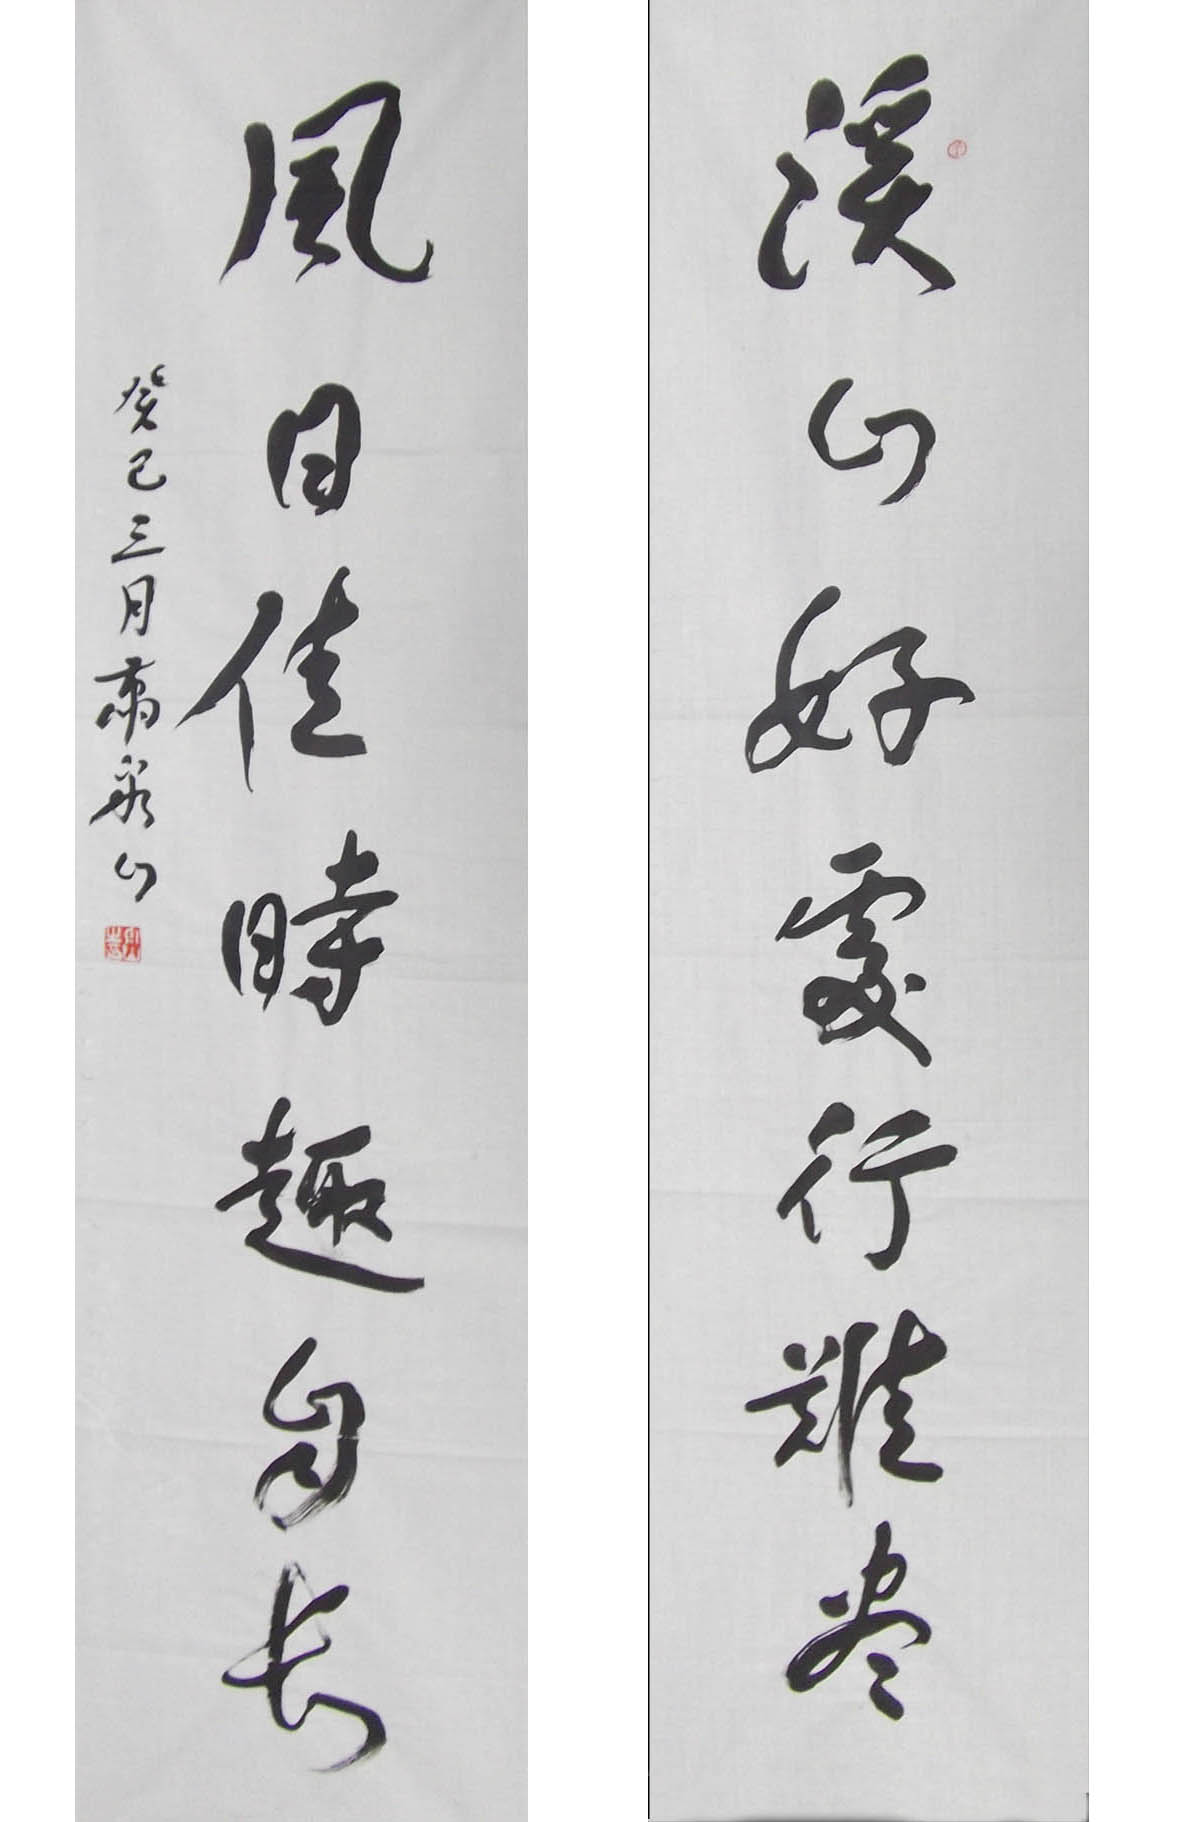 溪山好處行難盡
風日佳時趣自長
癸巳三月肃泉山